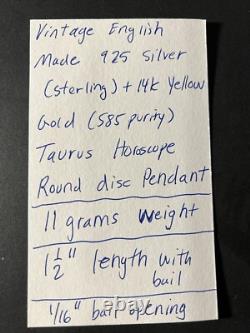 Vintage English
Made 925 Silver
(sterling) + 14k Yellow
Gold (585 purity)
Taurus Horoscope
Round disc Pendant
11 grams weight
1 1/2" length with
bail
1/16" bail opening